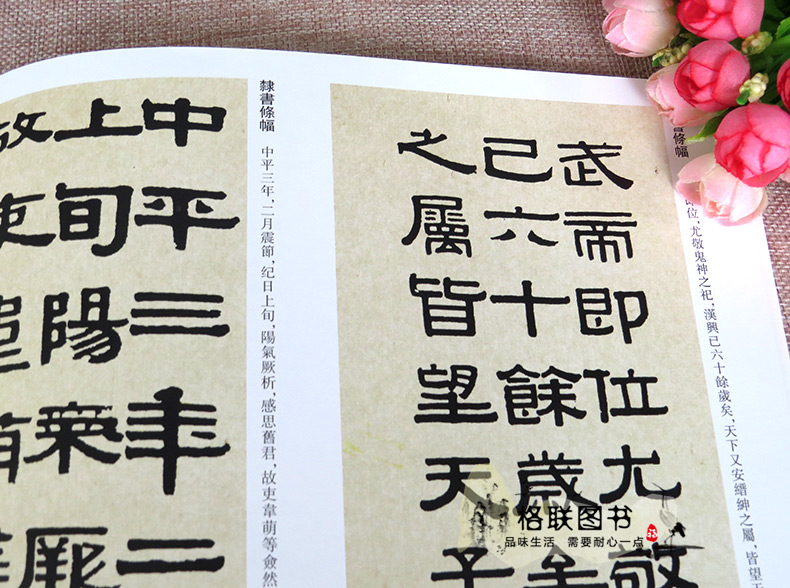 書條幅
即位,尤敬鬼神之祀,漢興已六十餘歲矣,天下又安縉紳之屬,皆望天
武帝即位尤敬
已六十餘歲
之屬皆望天子
隸書條幅
中平三年,二月震節,紀日上旬,陽氣厥析,感思舊君,故吏韋萌等僉然
中平三年二
上旬陽氣厥
故吏
格联图书
品味生活 需要耐心一点